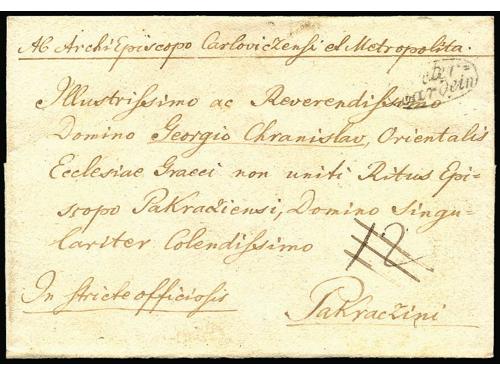 Ab ArchiEpiscopo Carloviczensi et Metropolita.
Peter=
wardein
Illustrissimo ac Reverendissimo
Domino Georgio Chranislav, Orientalis
Ecclesiae Graeci non uniti Ritus Epi=
scopo Pakraziensi, Domino Singu=
lariter Colendissimo
12
In stricte officiosis
Pakraczini